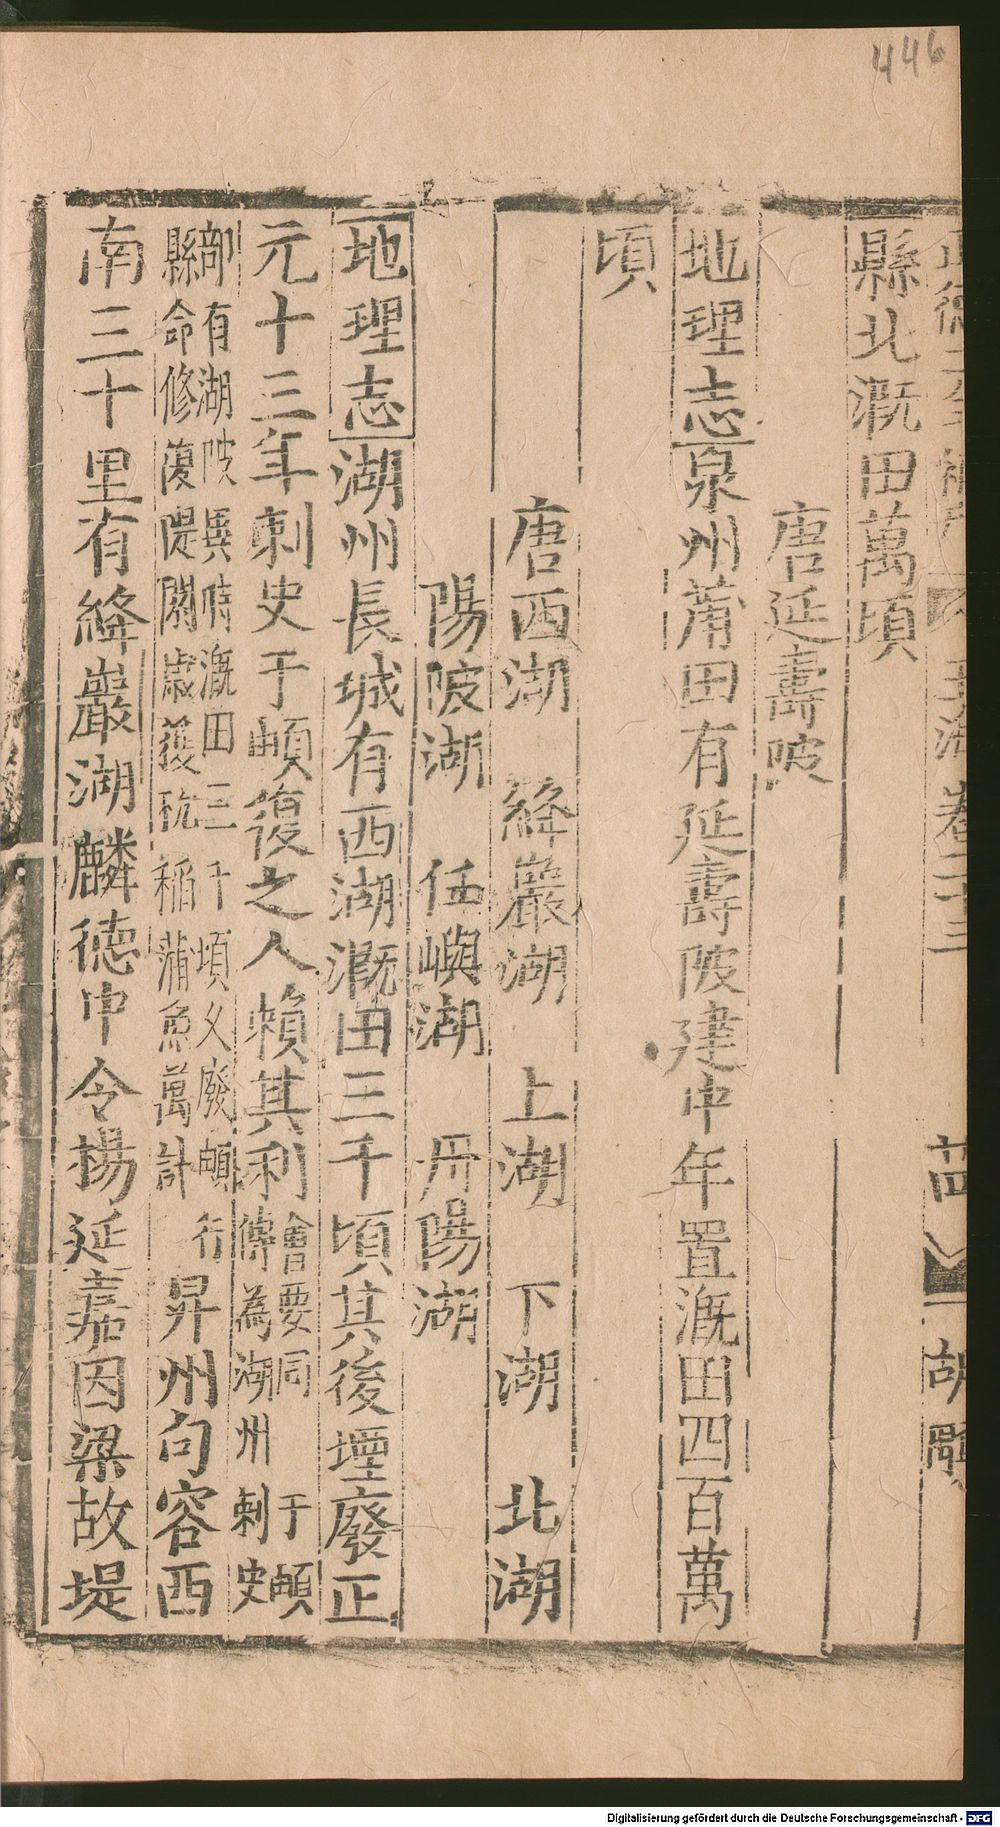 446
玉海 卷二十三
縣北漑田萬頃
唐延壽陂
地理志泉州莆田有延壽陂建中年置漑田四百萬
頃
唐西湖 絳巖湖 上湖 下湖 北湖
陽陂湖 任嶼湖 丹陽湖
地理志湖州長城有西湖漑田三千頃其後堙廢正
元十三年刺史于頔復之人賴其利會要同于頔傳為湖州刺史
部有湖陂異時漑田三千頃久廢頔行
縣命修復隄閼歲獲秔稻蒲魚萬計昇州句容西
南三十里有絳巖湖麟德中令楊延嘉因梁故堤
Digitalisierung gefördert durch die Deutsche Forschungsgemeinschaft - DFG